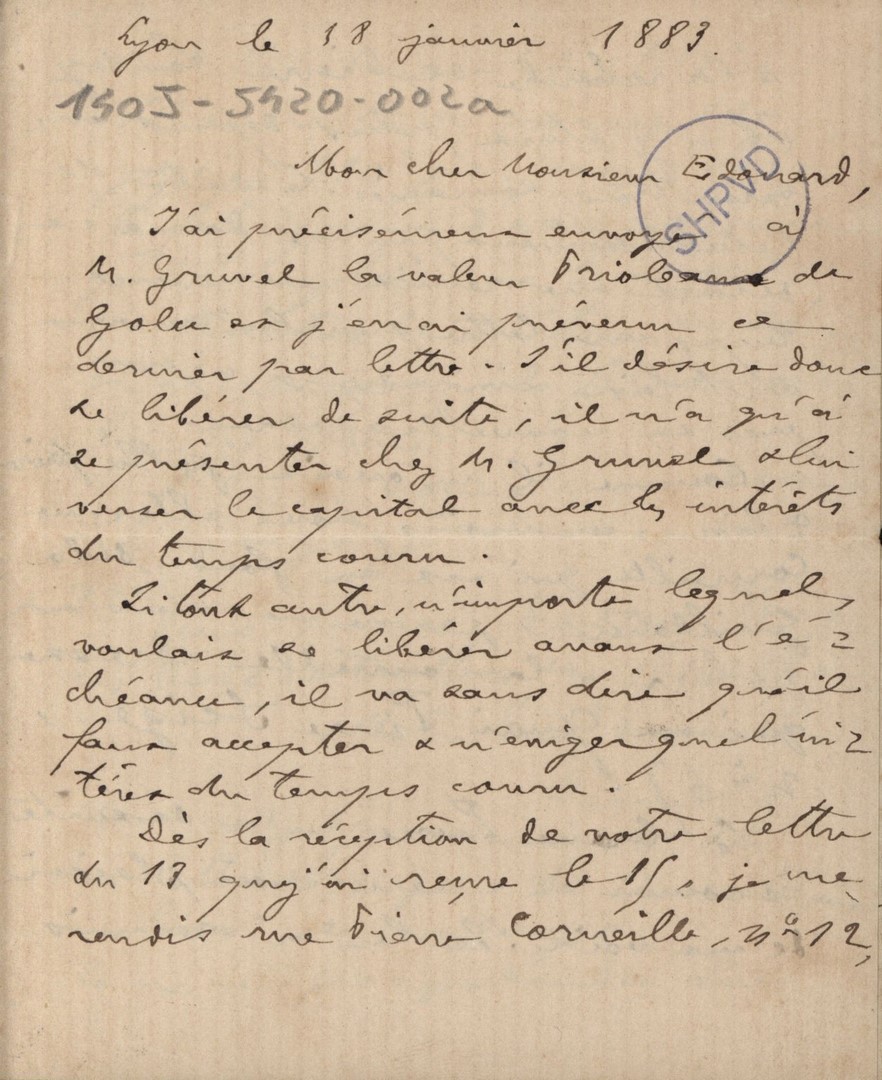 Lyon le 18 janvier 1883.
1405-5420-002a
Mon cher Monsieur Edouard,
SHPVD
J'ai précisément envoyé à
M. Gruvel la valeur Frioleaux de
Golu et j'en ai prévenu ce
dernier par lettre. S'il désire donc
se libérer de suite, il n'a qu'à
se présenter chez M. Gruvel & lui
verser le capital avec les intérêts
du temps couru.
Si tout autre, n'importe lequel,
voulait se libérer avant l'é=
chéance, il va sans dire qu'il
faut accepter & n'exiger que l'in=
térêt du temps couru.
Dès la réception de votre lettre
du 13 que j'ai reçue le 15, je me
rendis rue Pierre Corneille, nº 12,